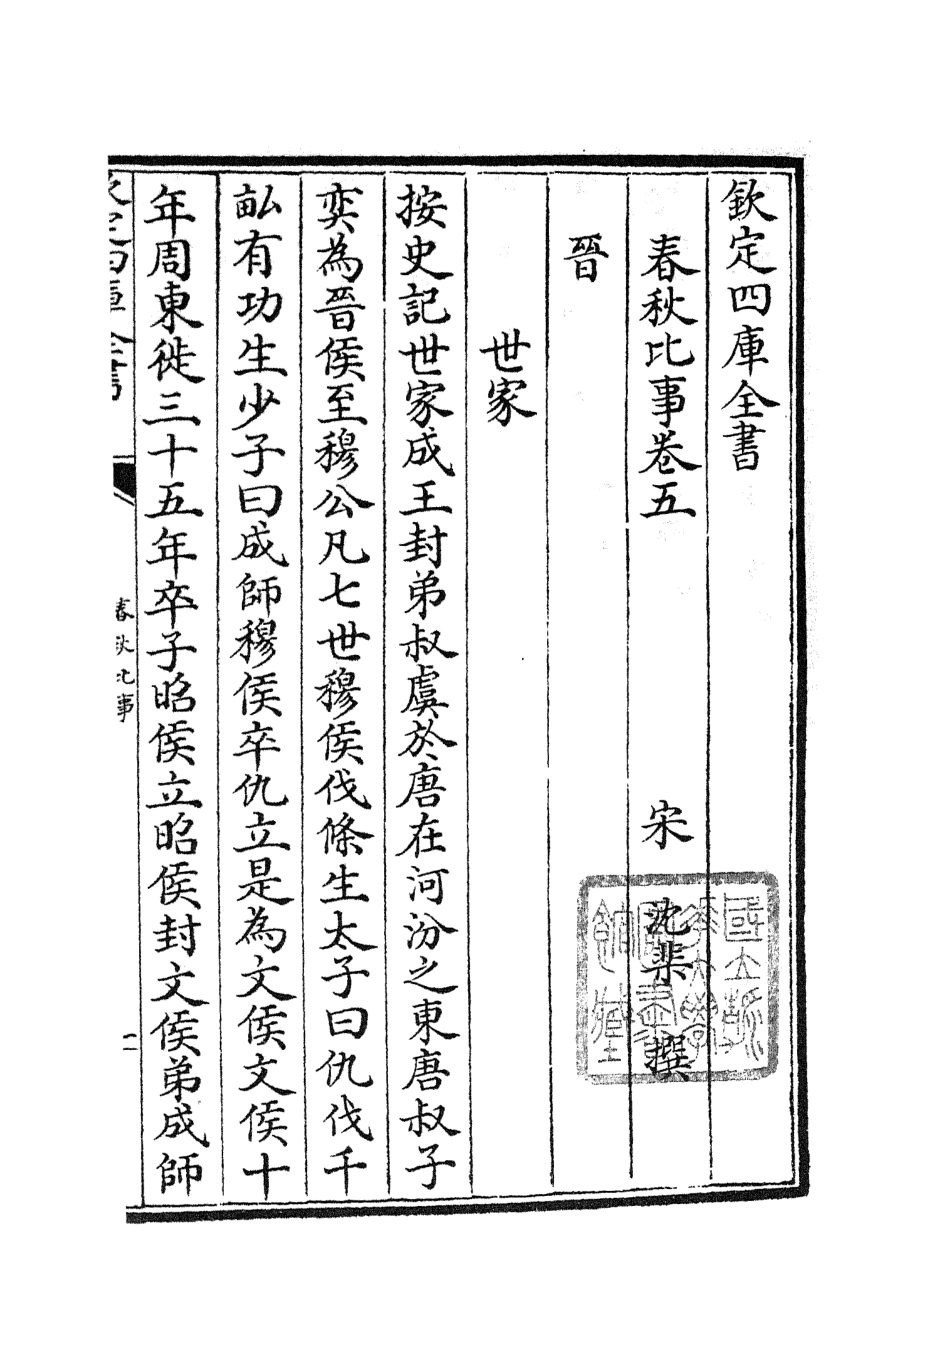 欽定四庫全書
春秋比事卷五　宋　沈棐　撰
晉
世家
按史記世家成王封弟叔虞於唐在河汾之東唐叔子
奕為晉侯至穆公凡七世穆侯伐條生太子曰仇伐千
畝有功生少子曰成師穆侯卒仇立是為文侯文侯十
年周東徙三十五年卒子昭侯立昭侯封文侯弟成師
欽定四庫全書
春秋比事
國立
館藏